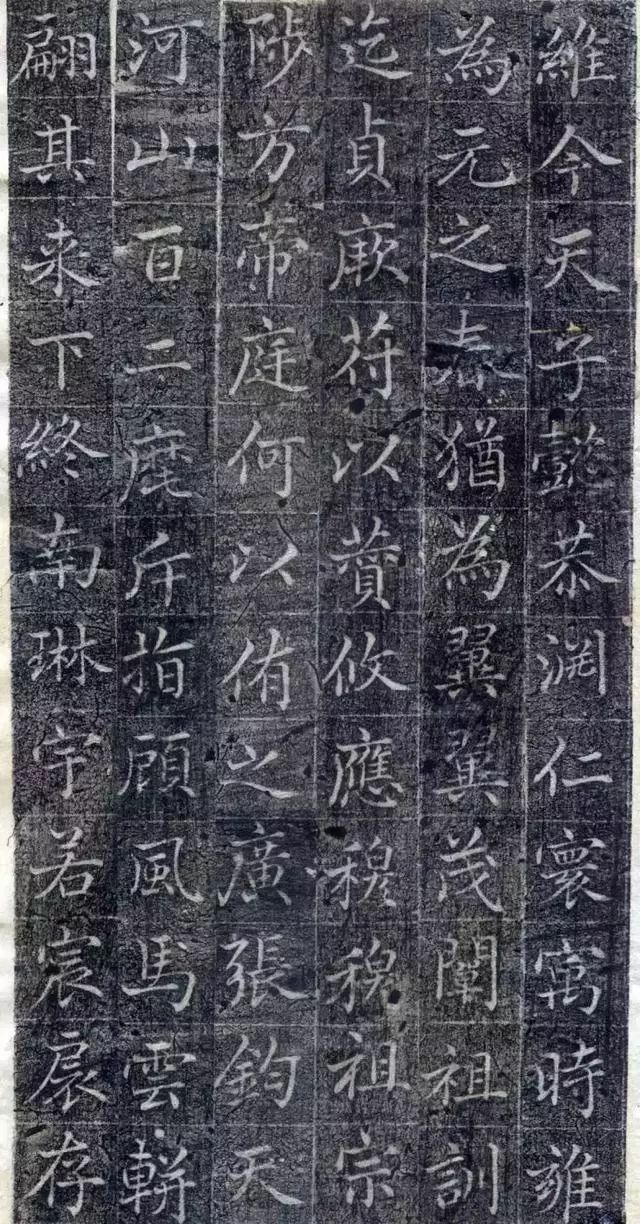 維今天子懿恭渊仁寰寓時雍
為元之猶為翼翼茂闡祖訓
迄貞厥苻以攸應穆穆祖宗
陟方帝庭何以侑之廣張鈞天
河山百二麾斥指顧風馬雲軿
翩其来下終南琳宇若宸扆存